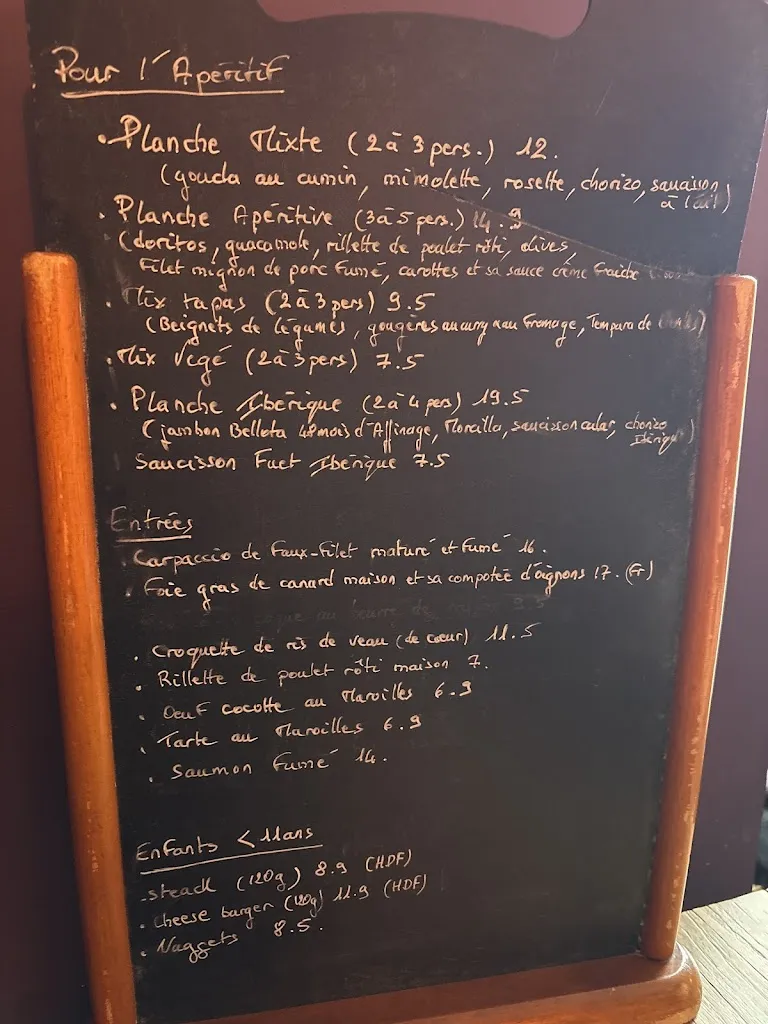 Pour l'Apéritif
. Planche Mixte (2 à 3 pers.) 12.
(gouda au cumin, mimolette, rosette, chorizo, saucisson
à l'ail)
. Planche Apéritive (3 à 5 pers.) 14.9
(doritos, guacamole, rillette de poulet rôti, olives,
Filet mignon de porc Fumé, carottes et sa sauce crème Fraiche
. Mix tapas (2 à 3 pers) 9.5
(Beignets de légumes, gougères au curry au Fromage, Tempura de
. Mix Végé (2 à 3 pers) 7.5
. Planche Ibérique (2 à 4 pers) 19.5
(jambon Bellota 48 mois d'Affinage, Morcilla, saucisson cular, chorizo
Ibérique)
Saucisson Fuet Ibérique 7.5
Entrées
. Carpaccio de Faux-Filet maturé et Fumé 16.
. Foie gras de canard maison et sa compotée d'oignons 17. (Fr)
au beurre de 9.5
. Croquette de ris de veau (de cœur) 11.5
. Rillette de poulet rôti maison 7.
. Oeuf cocotte au Maroilles 6.9
. Tarte au Maroilles 6.9
. Saumon Fumé 14.
Enfants < 11ans
. steack (120g) 8.9 (HDF)
. Cheese burger (120g) 11.9 (HDF)
. Nuggets 8.5.